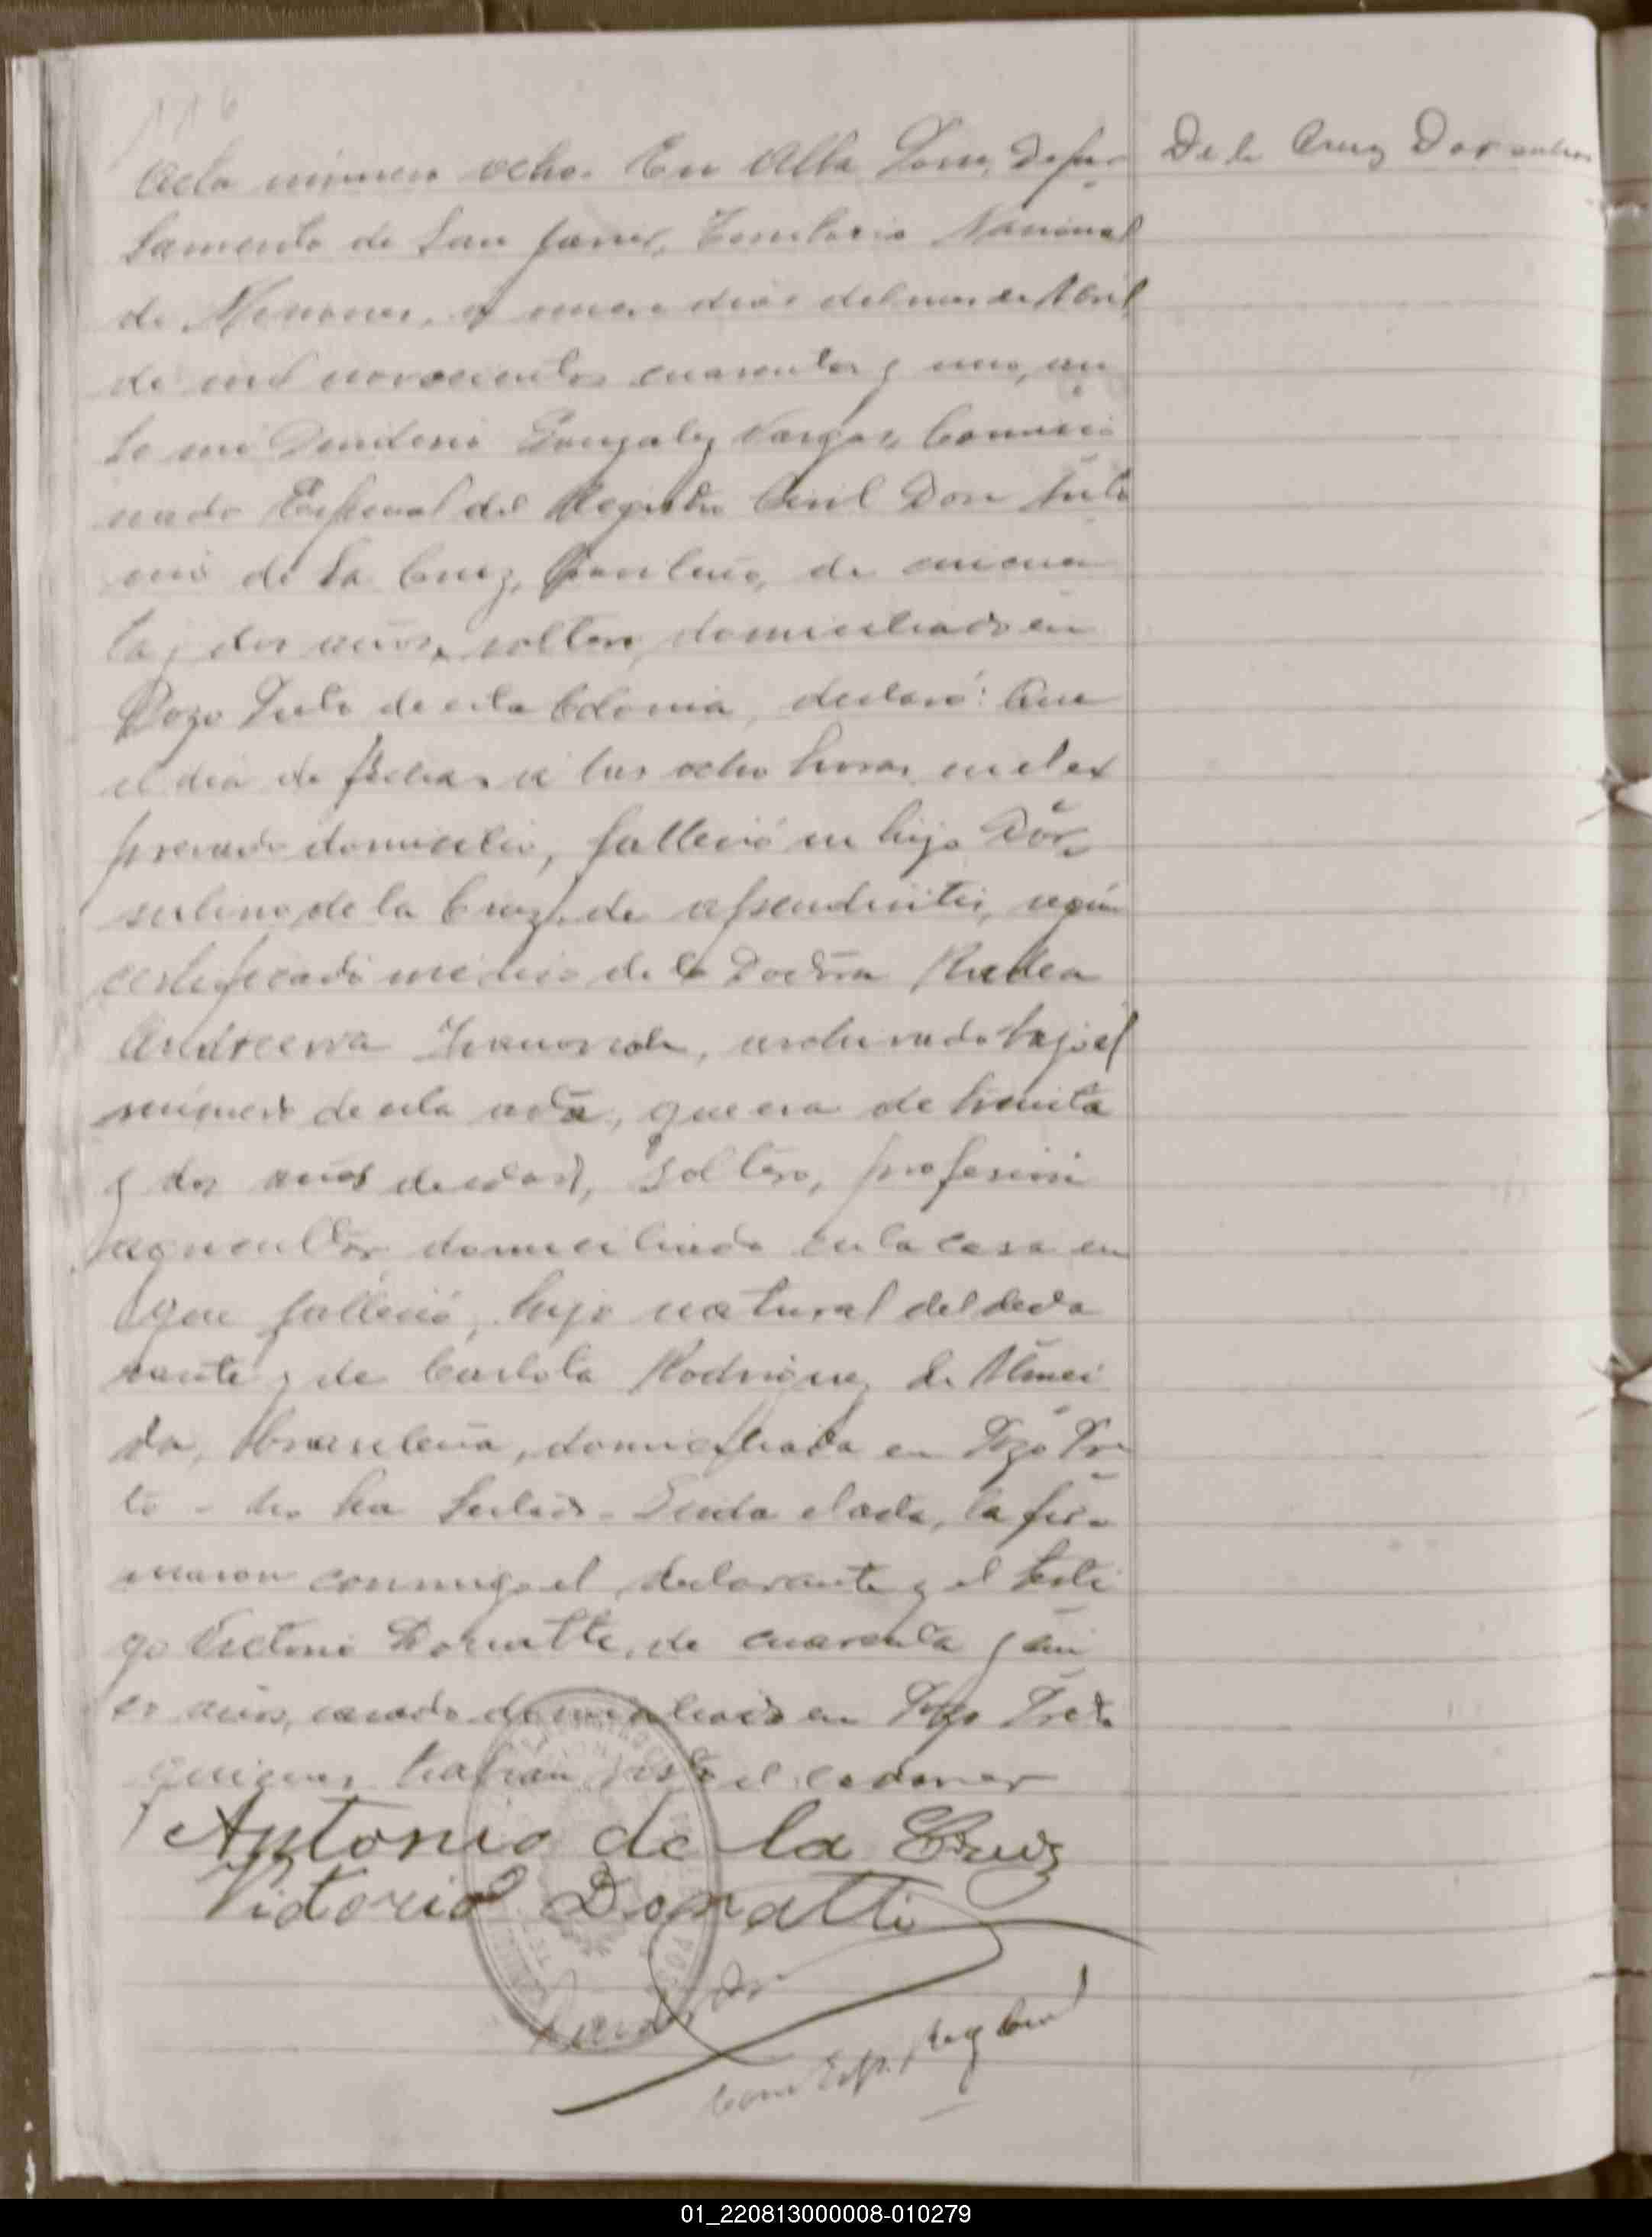 Acta número ocho. En Alba Posse, Depar
tamento de San Javier, Territorio Nacional
de Misiones, a nueve dias del mes de Abril
de mil novecientos cuarenta y uno, an
te mi Gonzalez Vargas, Comisio
nado Especial del Registro Civil Don Anto
nio de la Cruz, brasileño, de cincuen
ta y dos años, soltero, domiciliado en
Pozo Preto de esta Colonia, declaró: Que
el dia de fecha a las ocho horas en el ex
presado domicilio, falleció su hijo Dor
sulino de la Cruz, de apendicitis, según
certificado médico de la Doctora
archivado bajo el
número de esta acta, que era de treinta
y dos años de edad, soltero, profesión
agricultor domiciliado en la casa en
que falleció, hijo natural del decla
rante y de Carlota Rodriguez de Almei
da, brasileña, domiciliada en Pozo Pre
to - No ha testado - Leida el acta, la fir
maron conmigo el declarante y el testi
go Victorio Donatti, de cuarenta y cin
co años, casado domiciliado en Pozo Preto
quienes habian visto el cadaver
Antonio de la Cruz
Victorio Donatti
Com Esp. Reg Civil
De la Cruz
01_220813000008-010279